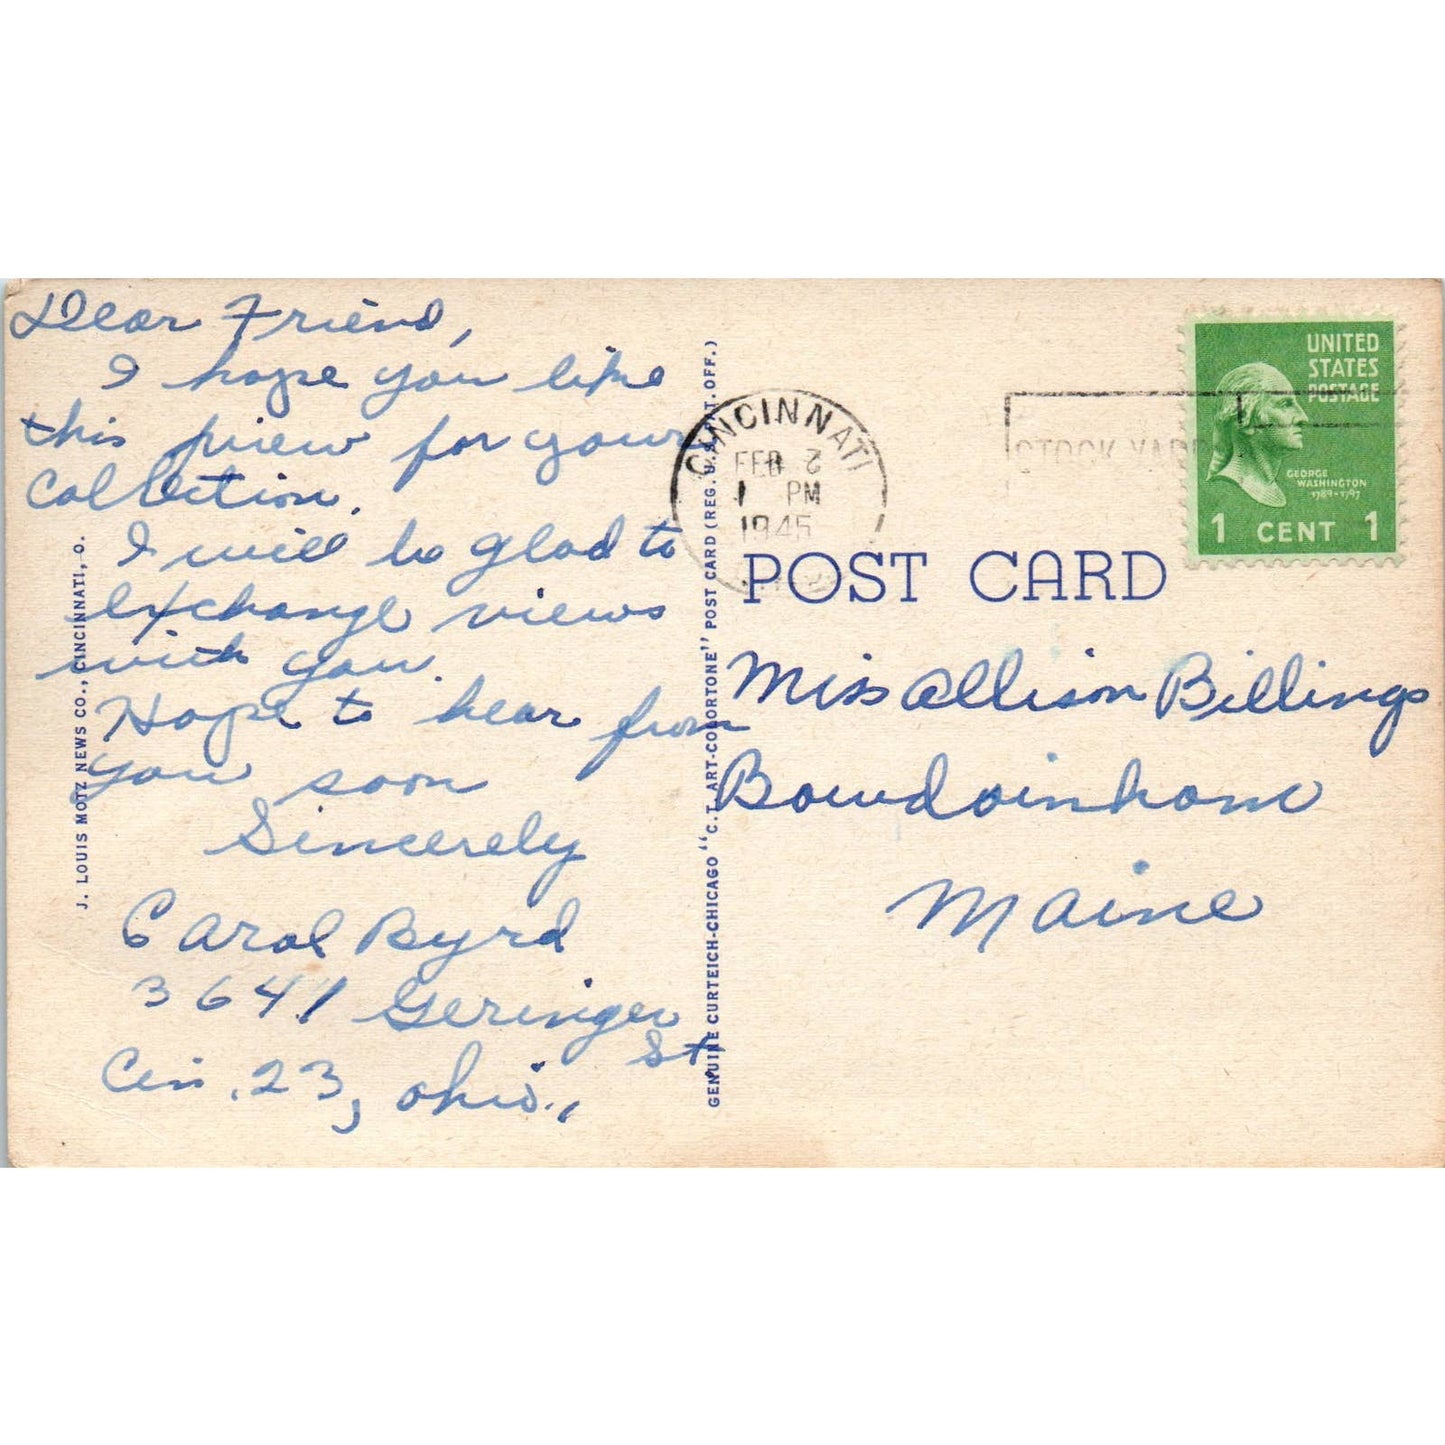 Dear Friend,
I hope you like
this view for your
collection.
I will be glad to
exchange views
with you.
Hope to hear from
you soon
Sincerely
Carol Byrd
3641 Geringer
St.
Cin. 23, Ohio.,
J. LOUIS MOTZ NEWS CO., CINCINNATI, O.
GENUINE CURTEICH-CHICAGO "C.T. ART-COLORTONE" POST CARD (REG. U.S. PAT. OFF.)
CINCINNATI
FEB 2
1 PM
1945
STOCK YARD
UNITED
STATES
POSTAGE
GEORGE
WASHINGTON
1789-1797
1 CENT 1
POST CARD
Miss Allison Billings
Bowdoinham
Maine